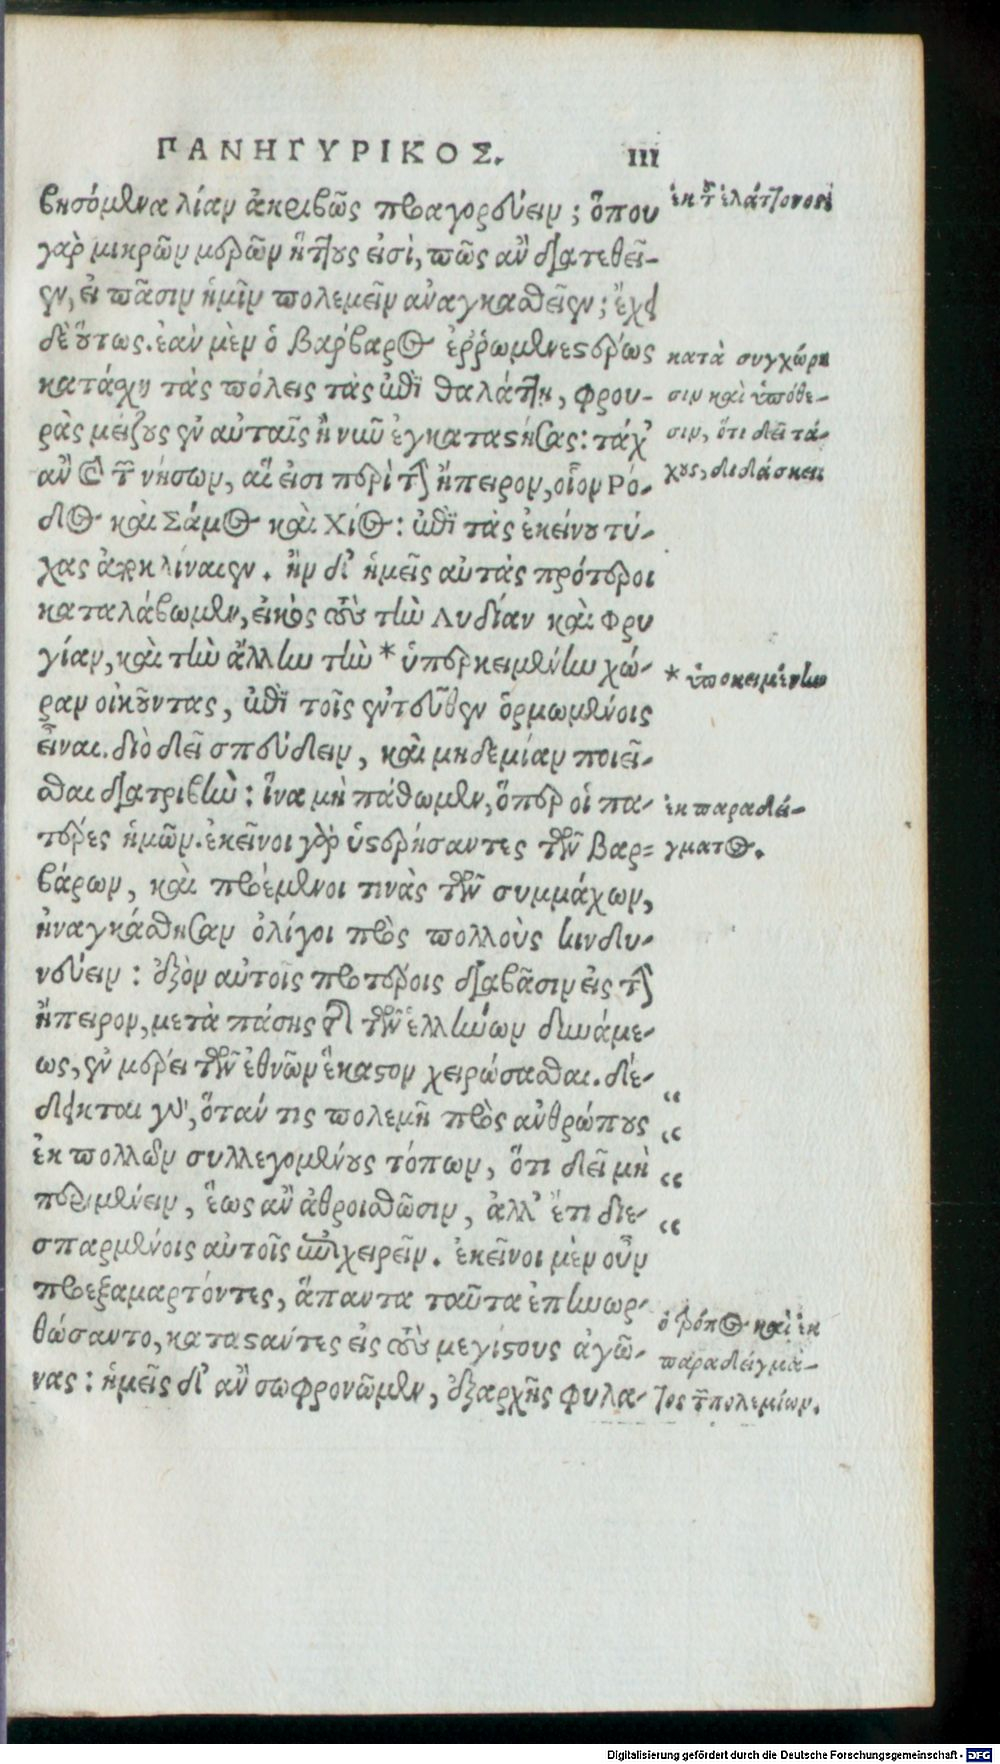 ΠΑΝΗΓΥΡΙΚΟΣ. 111
βησόμενα λίαν ἀκριβῶς προαγορεύειν; ὅπου
γὰρ μικρῶν μερῶν ἥττους εἰσὶ, πῶς ἂν διατεθεῖ-
εν, εἰ πᾶσιν ἡμῖν πολεμεῖν ἀναγκασθεῖεν; ἔχει
δὲ οὕτως. ἐὰν μὲν ὁ βάρβαρος ἐῤῥωμενεστέρως
κατάσχῃ τὰς πόλεις τὰς ἐπὶ θαλάττῃ, φρου-
ρὰς μείζους ἐν αὐταῖς ἢ νῦν ἐγκαταστήσας: τάχ'
ἂν καὶ τῶν νήσων, αἵ εἰσι περὶ τὴν ἤπειρον, οἷον Ῥό-
δος καὶ Σάμος καὶ Χίος: ἐπὶ τὰς ἐκείνου τύ-
χας ἀποκλίναιεν. ἢν δ' ἡμεῖς αὐτὰς πρότεροι
καταλάβωμεν, εἰκὸς τοὺς τὴν Λυδίαν καὶ Φρυ
γίαν, καὶ τὴν ἄλλην τὴν * ὑπερκειμένην χώ-
ραν οἰκοῦντας, ἐπὶ τοῖς ἐντεῦθεν ὁρμωμένοις
εἶναι. διὸ δεῖ σπεύδειν, καὶ μηδεμίαν ποιεῖ-
σθαι διατριβὴν: ἵνα μὴ πάθωμεν, ὅπερ οἱ πα-
τέρες ἡμῶν. ἐκεῖνοι γὰρ ὑστερήσαντες τῶν βαρ-
βάρων, καὶ προέμενοι τινὰς τῶν συμμάχων,
ἠναγκάσθησαν ὀλίγοι πρὸς πολλοὺς κινδυ-
νεύειν: ἐξὸν αὐτοῖς προτέροις διαβᾶσιν εἰς τὴν
ἤπειρον, μετὰ πάσης τῆς τῶν ἑλλήνων δυνάμε-
ως, ἐν μέρει τῶν ἐθνῶν ἕκαστον χειρώσασθαι. δέ-
δεικται γὰρ, ὅταν τις πολεμῇ πρὸς ἀνθρώπους
ἐκ πολλῶν συλλεγομένους τόπων, ὅτι δεῖ μὴ
περιμένειν, ἕως ἂν ἀθροισθῶσιν, ἀλλ' ἔτι διε-
σπαρμένοις αὐτοῖς ἐπιχειρεῖν. ἐκεῖνοι μὲν οὖν
προεξαμαρτόντες, ἅπαντα ταῦτα ἐπηνωρ-
θώσαντο, καταστάντες εἰς τοὺς μεγίστους ἀγῶ-
νας: ἡμεῖς δ' ἂν σωφρονῶμεν, ἐξαρχῆς φυλα-
ἐκ τοῦ ἐλάττονος
κατὰ συγχώρη
σιν καὶ ὑπόθε-
σιν, ὅτι δεῖ τά-
χους, διδάσκει
* ὑποκειμένην
ἐκ παραδεί-
γματος.
“
“
“
“
ὁ τρόπος καὶ ἐκ
παραδείγμα-
τος τῶν πολεμίων.
Digitalisierung gefördert durch die Deutsche Forschungsgemeinschaft - DFG